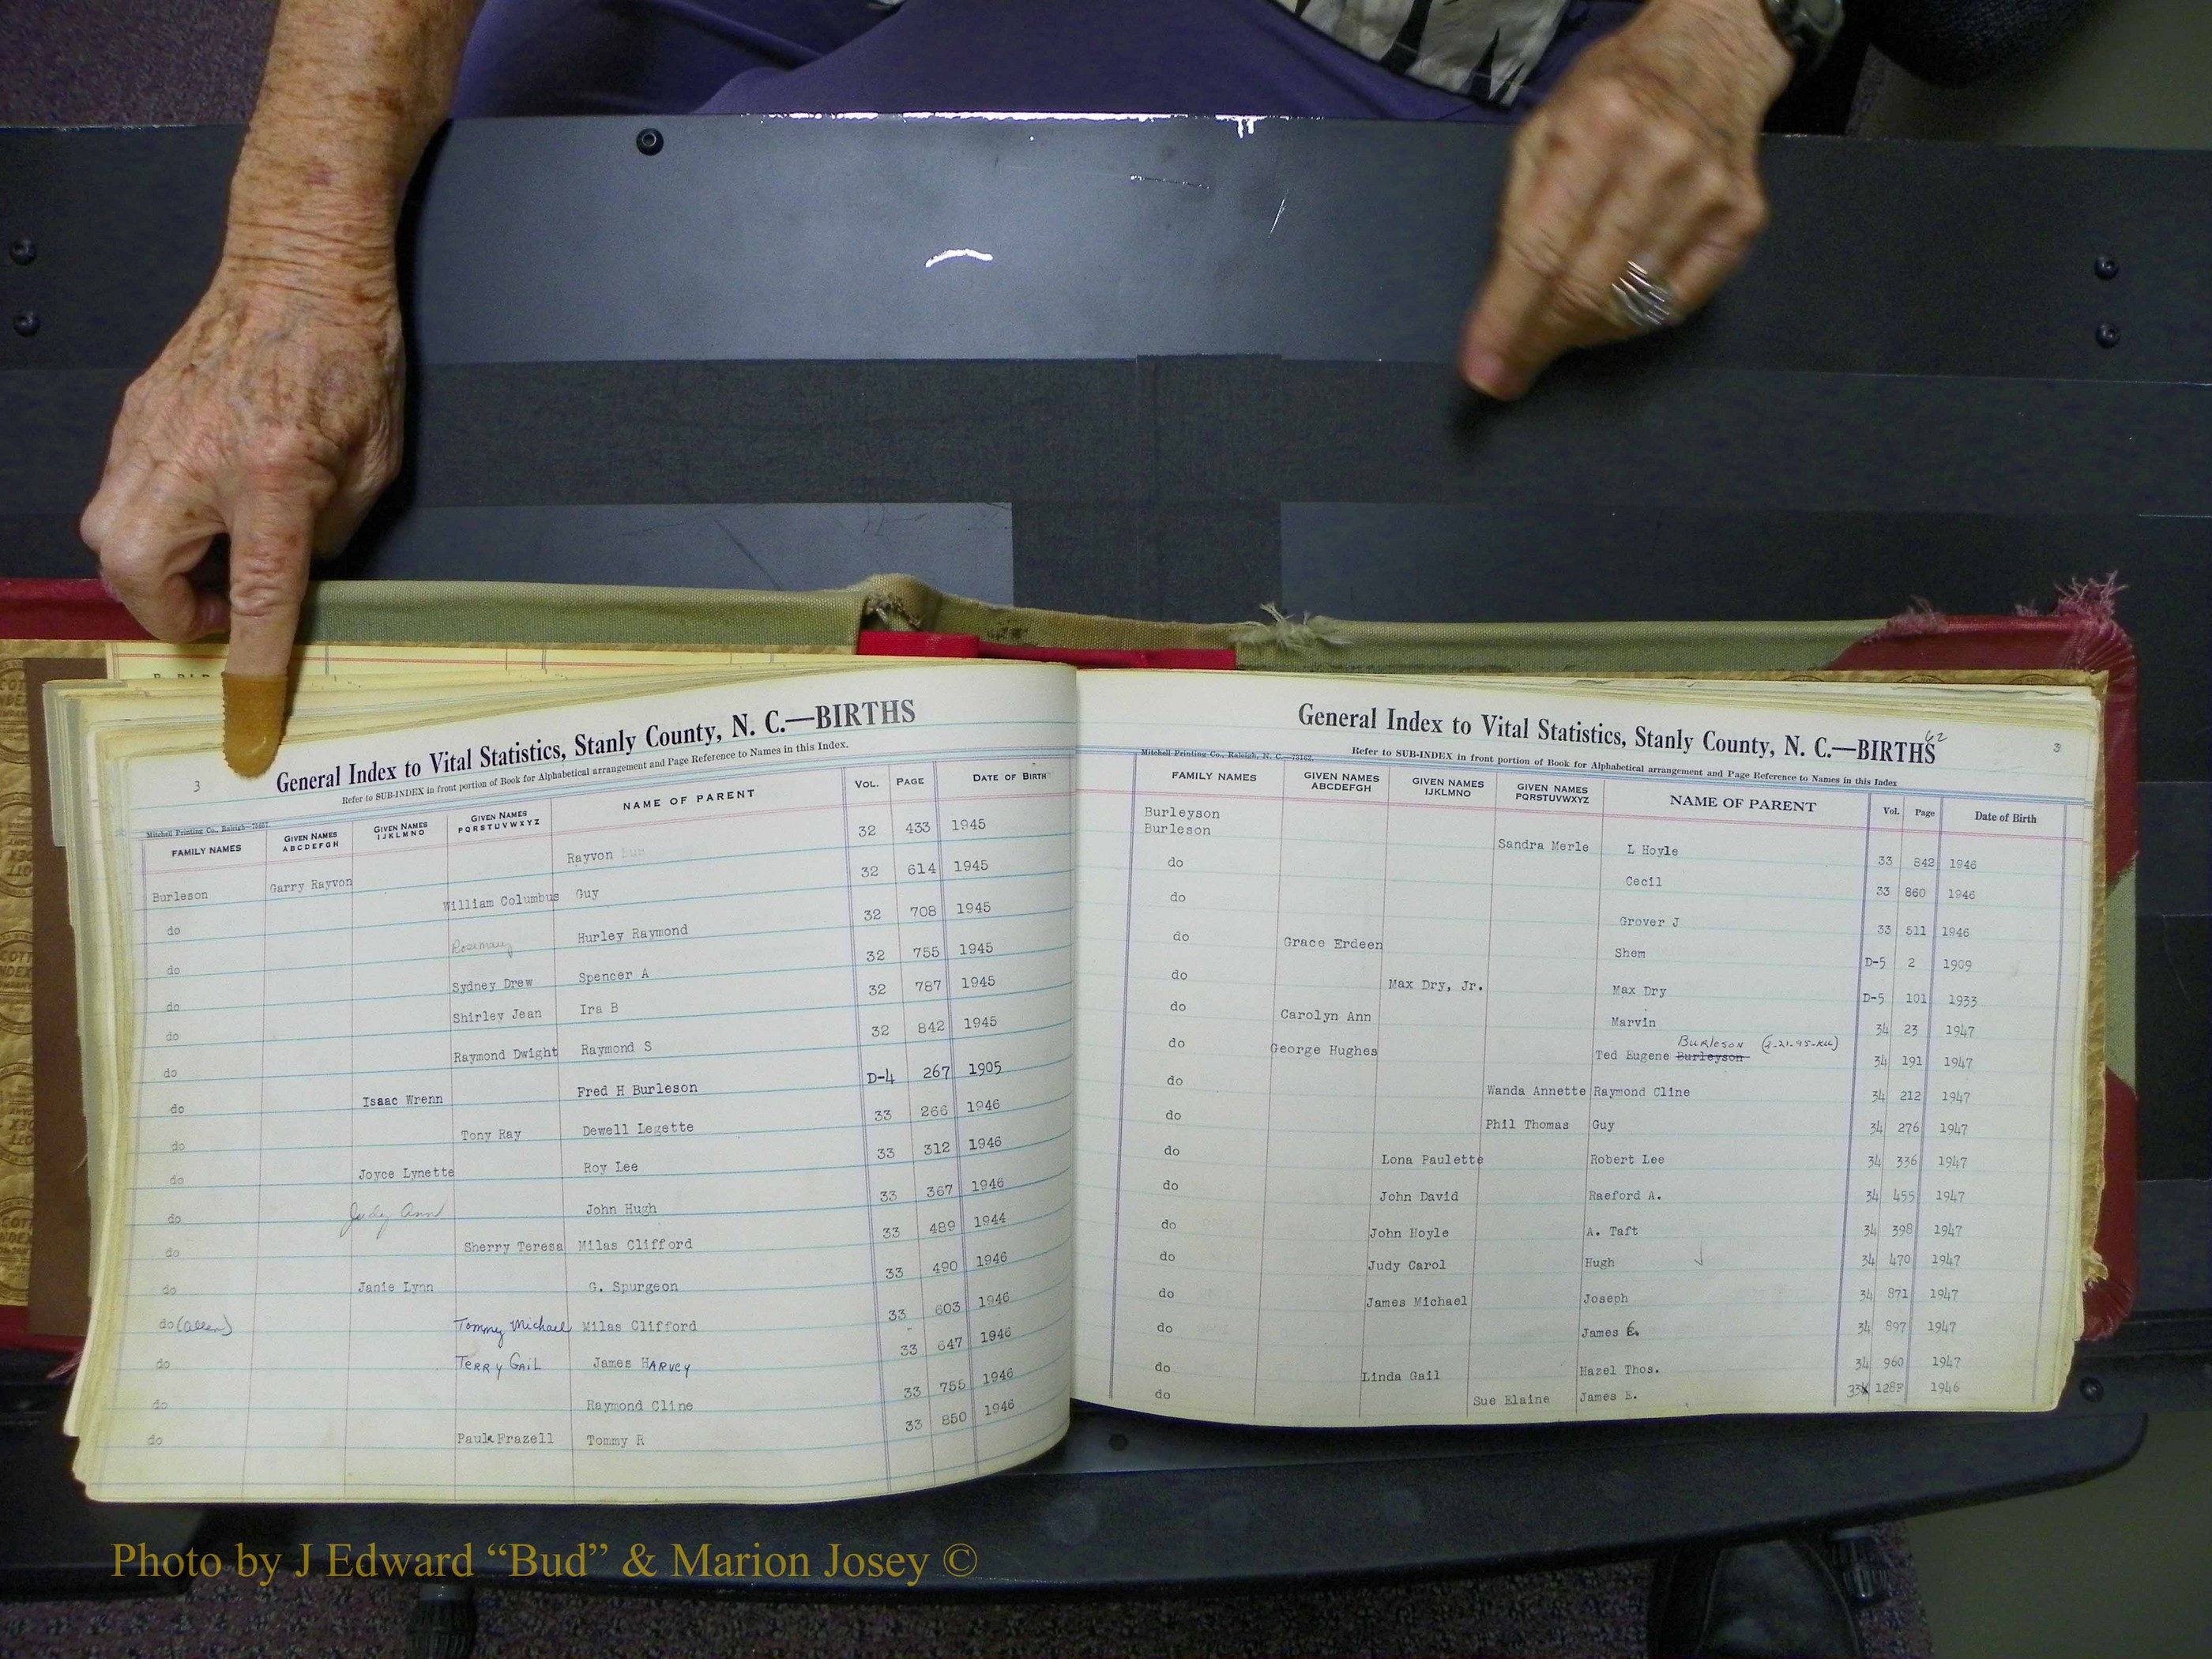 3
General Index to Vital Statistics, Stanly County, N. C.—BIRTHS
Refer to SUB-INDEX in front portion of Book for Alphabetical arrangement and Page Reference to Names in this Index.
Mitchell Printing Co., Raleigh
FAMILY NAMES GIVEN NAMES ABCDEFGH GIVEN NAMES IJKLMNO GIVEN NAMES PQRSTUVWXYZ NAME OF PARENT VOL. PAGE DATE OF BIRTH
Burleson Garry Rayvon Rayvon 32 433 1945
do William Columbus Guy 32 614 1945
do Rosemary Hurley Raymond 32 708 1945
do Sydney Drew Spencer A 32 755 1945
do Shirley Jean Ira B 32 787 1945
do Raymond Dwight Raymond S 32 842 1945
do Isaac Wrenn Fred H Burleson D-4 267 1905
do Tony Ray Dewell Legette 33 266 1946
do Joyce Lynette Roy Lee 33 312 1946
do Judy Ann John Hugh 33 367 1946
do Sherry Teresa Milas Clifford 33 489 1944
do Janie Lynn G. Spurgeon 33 490 1946
do (allen) Tommy Michael Milas Clifford 33 603 1946
do TERRY GAIL James HARVEY 33 647 1946
do Raymond Cline 33 755 1946
do Paul Frazell Tommy R 33 850 1946
62
3
General Index to Vital Statistics, Stanly County, N. C.—BIRTHS
Refer to SUB-INDEX in front portion of Book for Alphabetical arrangement and Page Reference to Names in this Index
Mitchell Printing Co., Raleigh, N. C.
FAMILY NAMES GIVEN NAMES ABCDEFGH GIVEN NAMES IJKLMNO GIVEN NAMES PQRSTUVWXYZ NAME OF PARENT Vol. Page Date of Birth
Burleyson
Burleson Sandra Merle L Hoyle 33 842 1946
do Cecil 33 860 1946
do Grover J 33 511 1946
do Grace Erdeen Shem D-5 2 1909
do Max Dry, Jr. Max Dry D-5 101 1933
do Carolyn Ann Marvin 34 23 1947
Burleson
do George Hughes Ted Eugene Burleyson 34 191 1947
do Wanda Annette Raymond Cline 34 212 1947
do Phil Thomas Guy 34 276 1947
do Lona Paulette Robert Lee 34 336 1947
do John David Raeford A. 34 455 1947
do John Hoyle A. Taft 34 398 1947
do Judy Carol Hugh 34 470 1947
do James Michael Joseph 34 871 1947
do James E. 34 897 1947
do Linda Gail Hazel Thos. 34 960 1947
do Sue Elaine James E. 33 1946
Photo by J Edward “Bud” & Marion Josey ©